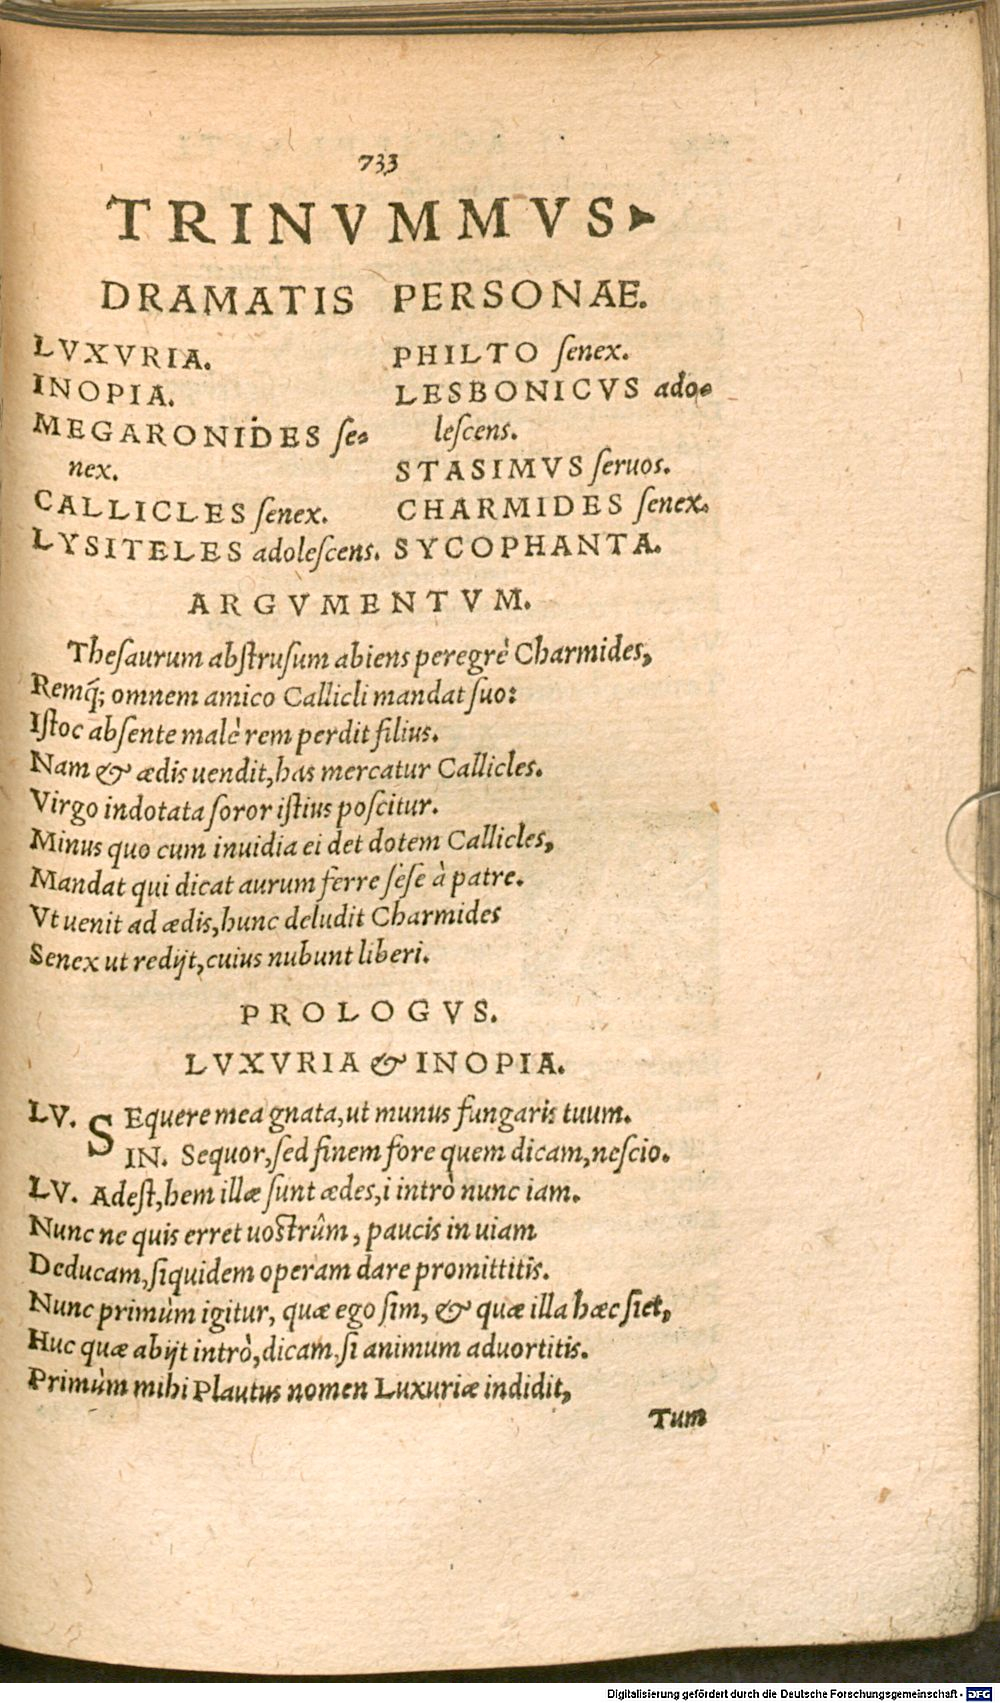 733
TRINVMMVS
DRAMATIS PERSONAE.
LVXVRIA.
INOPIA.
MEGARONIDES ſe-
nex.
CALLICLES ſenex.
LYSITELES adoleſcens.
PHILTO ſenex.
LESBONICVS ado-
leſcens.
STASIMVS ſeruos.
CHARMIDES ſenex.
SYCOPHANTA.
ARGVMENTVM.
Theſaurum abſtruſum abiens peregrè Charmides,
Remq́; omnem amico Callicli mandat ſuo:
Iſtoc abſente malè rem perdit filius.
Nam & ædis uendit, has mercatur Callicles.
Virgo indotata ſoror iſtius poſcitur.
Minus quo cum inuidia ei det dotem Callicles,
Mandat qui dicat aurum ferre ſeſe à patre.
Vt uenit ad ædis, hunc deludit Charmides
Senex ut redijt, cuius nubunt liberi.
PROLOGVS.
LVXVRIA & INOPIA.
LV. SEquere mea gnata, ut munus fungaris tuum.
IN. Sequor, ſed finem fore quem dicam, neſcio.
LV. Adeſt, hem illæ ſunt ædes, i intrò nunc iam.
Nunc ne quis erret uoſtrûm, paucis in uiam
Deducam, ſiquidem operam dare promittitis.
Nunc primùm igitur, quæ ego ſim, & quæ illa hæc ſiet,
Huc quæ abijt intrò, dicam, ſi animum aduortitis.
Primùm mihi Plautus nomen Luxuriæ indidit,
Tum
Digitalisierung gefördert durch die Deutsche Forschungsgemeinschaft - DFG